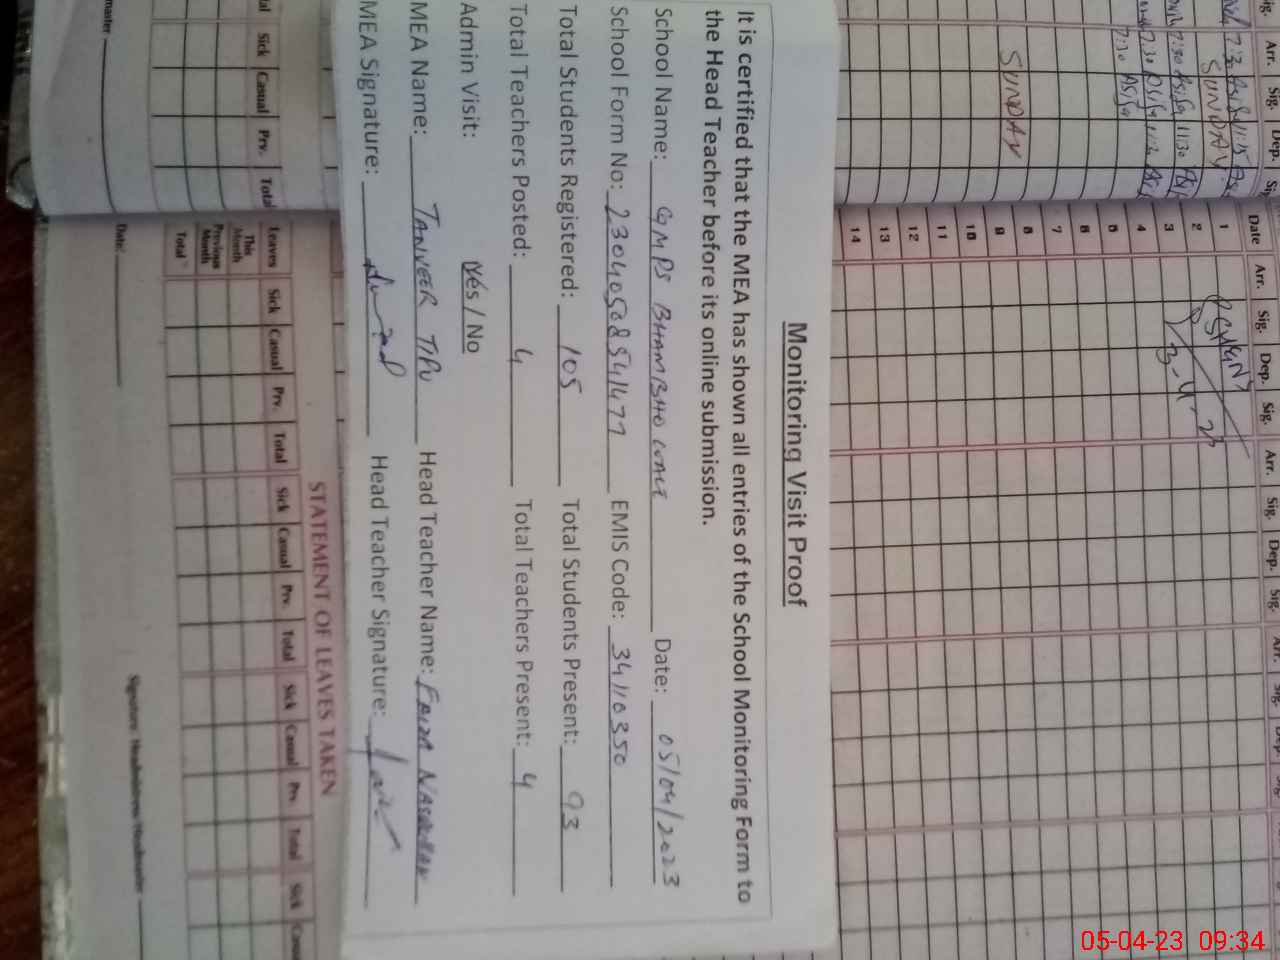 Monitoring Visit Proof
It is certified that the MEA has shown all entries of the School Monitoring Form to
the Head Teacher before its online submission.
School Name: GMPS BHAMBHO WALI Date: 05/04/2023
School Form No: EMIS Code: 34110350
Total Students Registered: 105 Total Students Present: 93
Total Teachers Posted: 4 Total Teachers Present: 4
Admin Visit: Yes / No
MEA Name: TANVEER TIPU Head Teacher Name: FAIZA
MEA Signature: Head Teacher Signature:
Sig. Arr. Sig. Dep.
SUNDAY
SUNDAY
Date Arr. Sig. Dep. Sig. Arr. Sig. Dep. Sig. Arr. Sig.
1
2
3
4
5
6
7
8
9
10
11
12
13
14
STATEMENT OF LEAVES TAKEN
Sick Casual Prv. Total
Leaves Sick Casual Prv. Total Sick Casual Prv. Total Sick Casual Prv. Total Sick
This Month
Previous Month
Total
Date:
Signature Headmistress/Headmaster
05-04-23 09:34